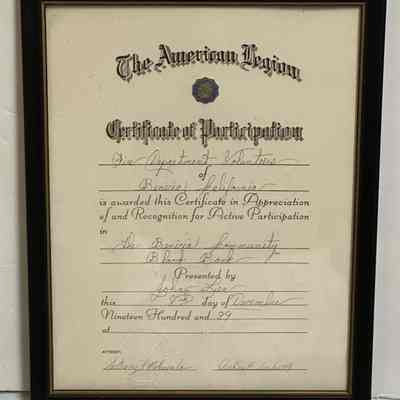 The American Legion
Certificate of Participation
Fire Department Volunteers
of
Benicia, California
is awarded this Certificate in Appreciation
of and Recognition for Active Participation
in
The Benicia Community
Blood Bank
Presented by
this day of December
Nineteen Hundred and 59
at
ATTEST: